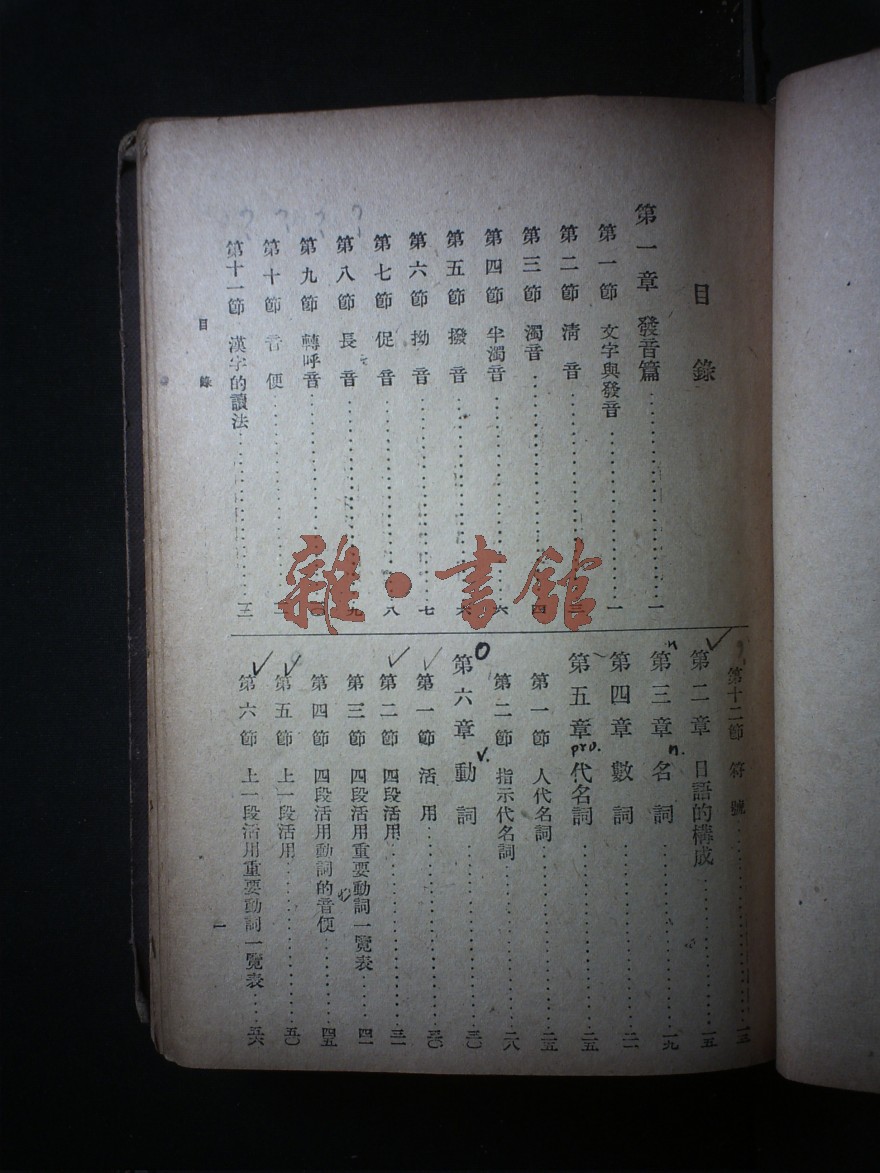 目錄
第一章 發音篇……一
第一節 文字與發音……一
第二節 淸音……三
第三節 濁音……四
第四節 半濁音……六
第五節 撥音……六
第六節 拗音……七
第七節 促音……八
第八節 長音……九
第九節 轉呼音……
第十節 音便……
第十一節 漢字的讀法……
第十二節 符號……一三
第二章 日語的構成……一五
n
第三章 名詞……一九
n.
第四章 數詞……二一
第五章 代名詞……二五
pro.
第一節 人代名詞……二五
第二節 指示代名詞……二八
第六章 動詞……三〇
v.
第一節 活用……三〇
第二節 四段活用……三一
第三節 四段活用重要動詞一覽表……四一
第四節 四段活用動詞的音便……四五
第五節 上一段活用……五〇
第六節 上一段活用重要動詞一覽表……五六
目錄
一
雜·書館